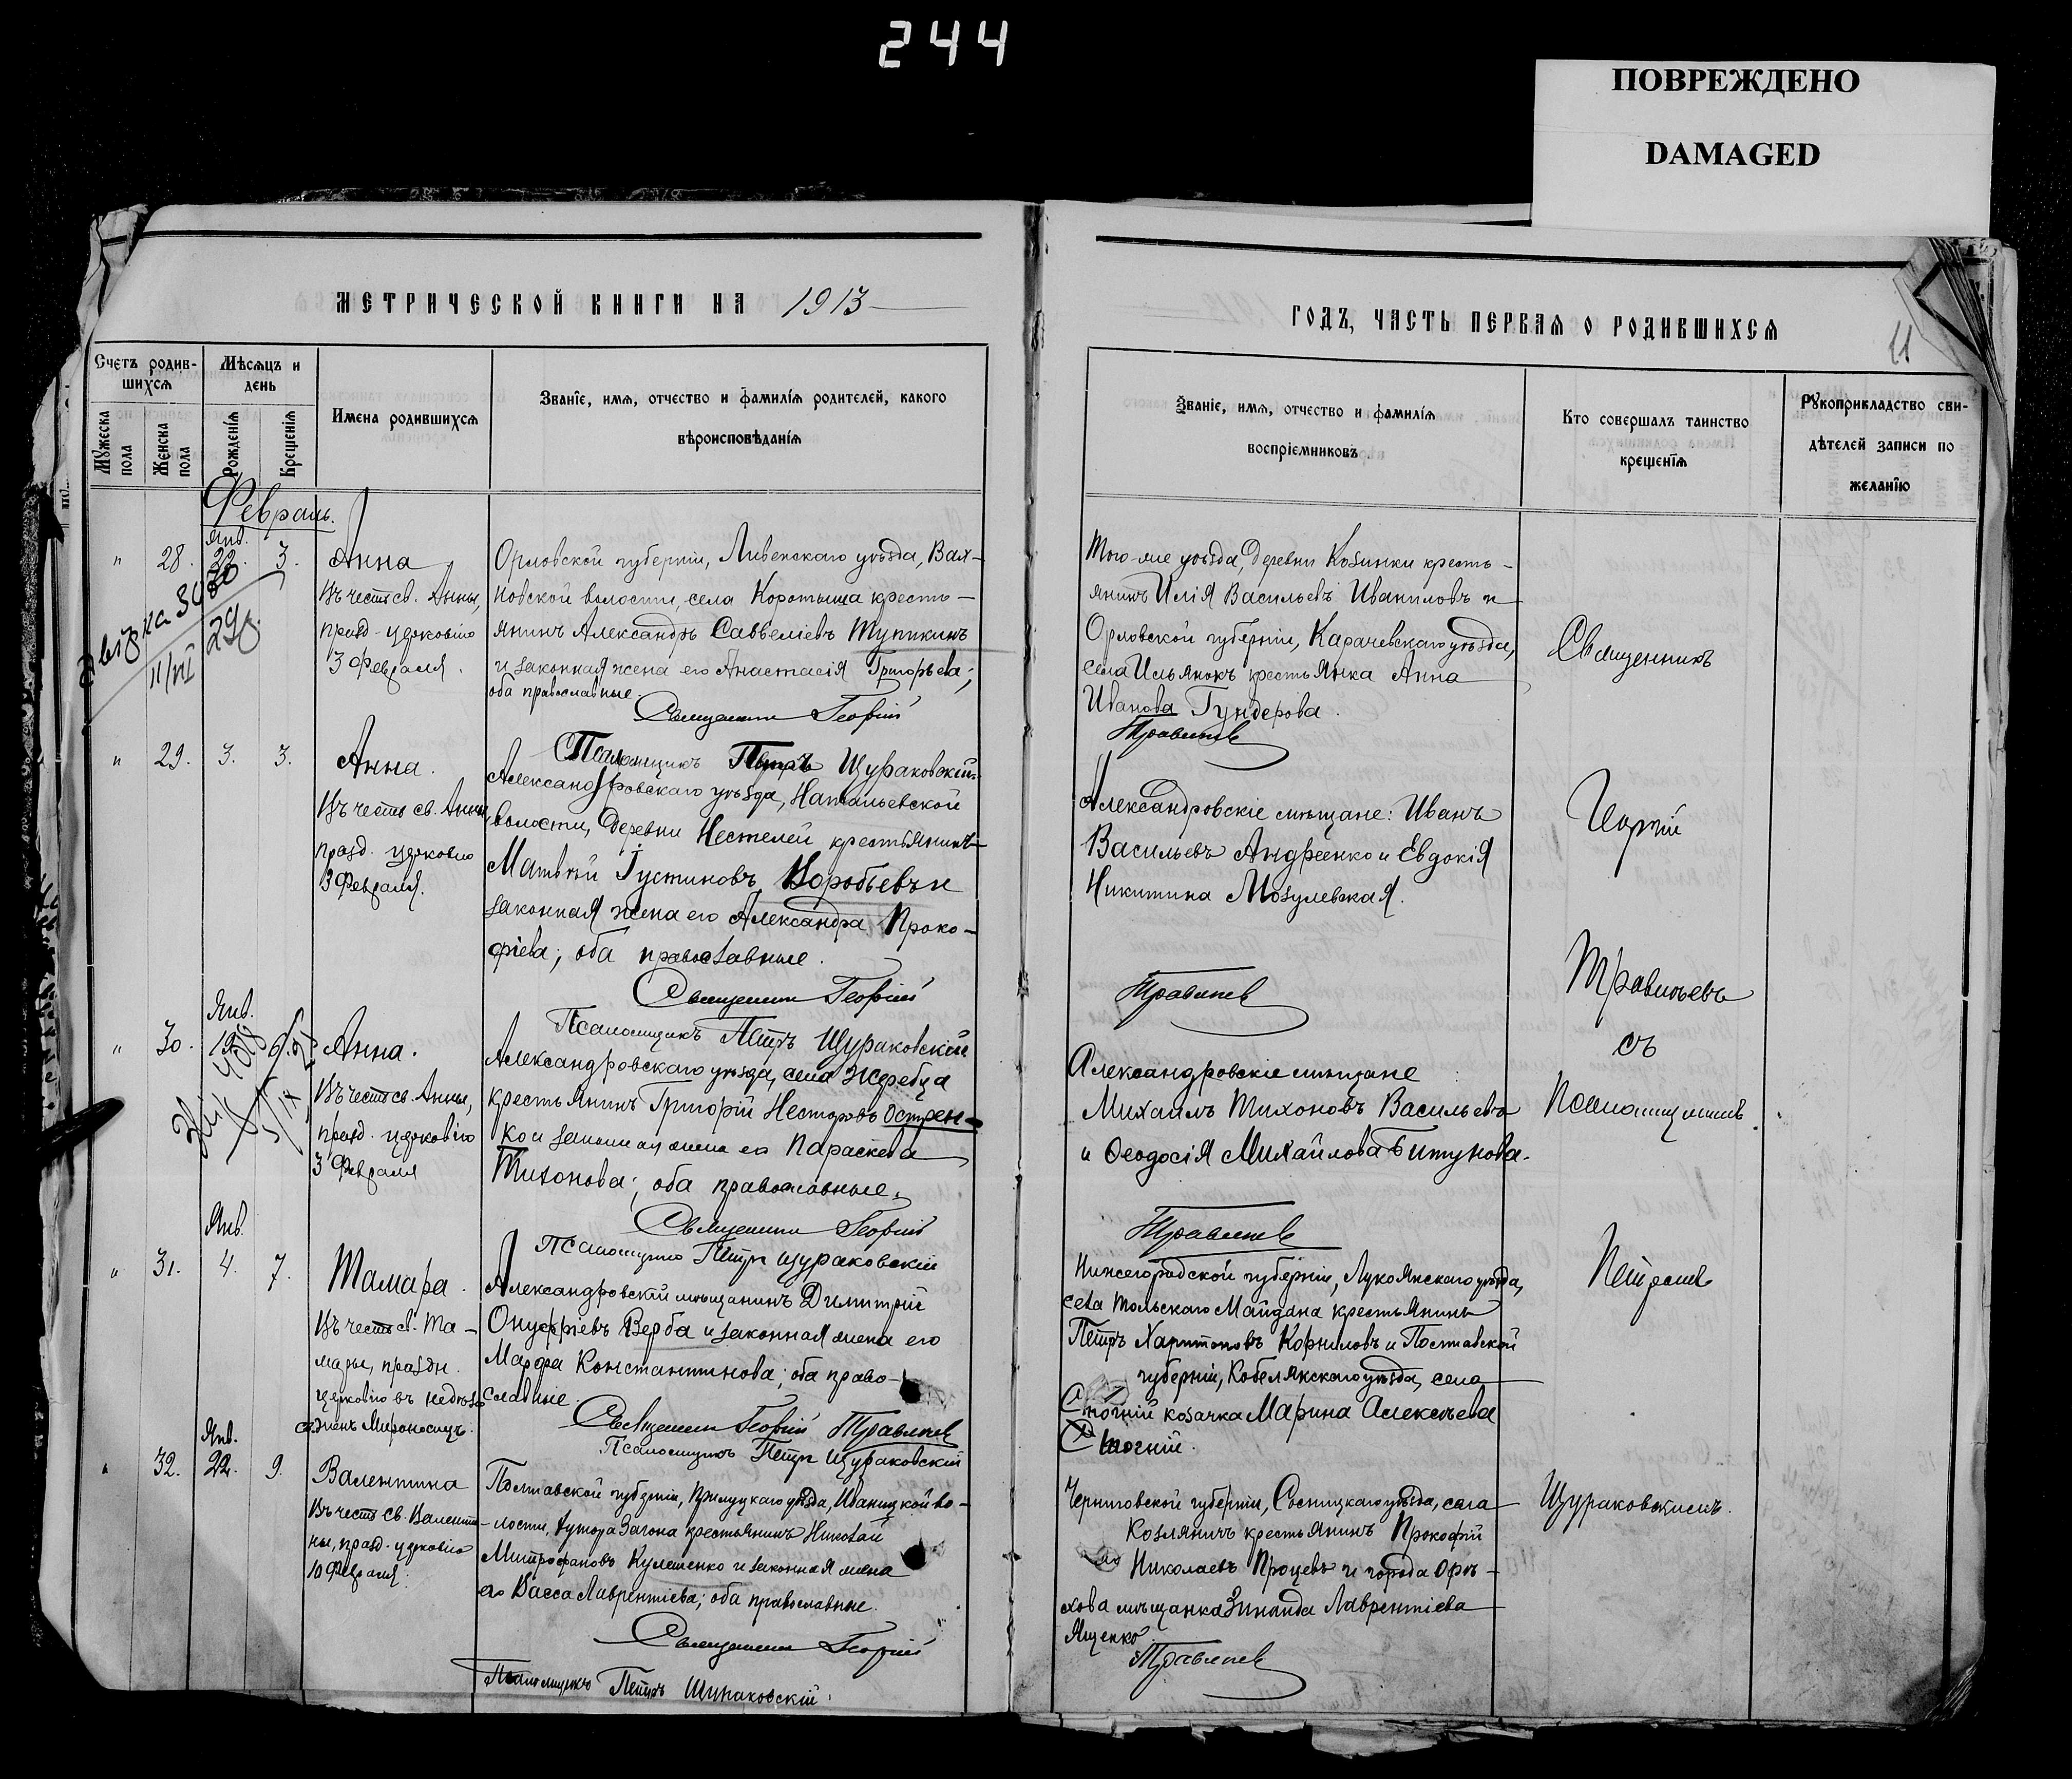 244
ПОВРЕЖДЕНО
DAMAGED
МЕТРИЧЕСКОЙ КНИГИ НА 1913
ГОДЪ, ЧАСТЬ ПЕРВАЯ О РОДИВШИХСЯ
11
Счетъ родив-
шихся
Мужеска пола
Женска пола
Мѣсяцъ и
день
Рожденія
Крещенія
Имена родившихся
Званіе, имя, отчество и фамилія родителей, какого
вѣроисповѣданія
Званіе, имя, отчество и фамилія
воспріемниковъ
Кто совершалъ таинство
крещенія
Рукоприкладство сви-
дѣтелей записи по
желанію
Февраль.
Янв.
" 28. 3.
Анна
Въ честь св. Анны,
празд. церковію
3 Февраля.
Орловской губерніи, Ливенскаго уѣзда, Вах-
новской волости, села Коротыша кресть-
янинъ Александръ Саввеліевъ Тупикинъ
и законная жена его Анастасія Григорьева;
оба православные.
Священникъ Георгій
Псаломщикъ Петръ Щураковскій
Того-же уѣзда, деревни Козинки кресть-
янинъ Илія Васильевъ Иваниловъ и
Орловской губерніи, Карачевскаго уѣзда,
села Ильянокъ крестьянка Анна
Иванова Гундерова.
Травинев
Священникъ
" 29. 3. 3.
Анна.
Въ честь св. Анны,
празд. церковію
3 Февраля.
Александровскаго уѣзда, Натальевской
волости, деревни Нестелей крестьянинъ
Матвѣй Іустиновъ Воробьевъ и
законная жена его Александра Проко-
фіева; оба православные.
Священникъ Георгій
Псаломщикъ Петръ Щураковскій
Александровскіе мѣщане: Иванъ
Васильевъ Андреенко и Евдокія
Никитина Мозулевская.
Георгій
Травиневъ
съ
Янв.
" 30. 19
Анна.
Въ честь св. Анны,
празд. церковію
3 Февраля
Александровскаго уѣзда, села Жеребца
крестьянинъ Григорій Несторовъ Острен-
ко и законная жена его Параскева
Тихонова; оба православные.
Священникъ Георгій
Псаломщикъ Петръ Щураковскій
Александровскіе мѣщане
Михаилъ Тихоновъ Васильевъ
и Ѳеодосія Михайлова Битунова.
Псаломщикомъ
Янв.
" 31. 4. 7.
Тамара.
Въ честь св. Та-
мары, праздн.
церковію въ недѣлю
св. женъ Мироносицъ.
Александровскій мѣщанинъ Димитрій
Онуфріевъ Верба и законная жена его
Марфа Константинова; оба право-
славные.
Священникъ Георгій Травинев
Псаломщикъ Петръ Щураковскій
Нижегородской губерніи, Лукоянскаго уѣзда,
села Тольскаго Майдана крестьянинъ
Петръ Харитоновъ Корниловъ и Полтавской
губерніи, Кобелякскаго уѣзда, села
козачка Марина Алексѣева
Петромъ
Янв.
" 32. 22. 9.
Валентина
Въ честь св. Валенти-
ны, празд. церковію
10 Февраля.
Полтавской губерніи, Прилуцкаго уѣзда, Иваницкой во-
лости, хутора Загона крестьянинъ Николай
Митрофановъ Кулешенко и законная жена
его Васса Лаврентіева; оба православные.
Священникъ Георгій
Псаломщикъ Петръ Щураковскій.
Черниговской губерніи, Сосницкаго уѣзда, села
Козляничъ крестьянинъ Прокофій
Николаевъ Процевъ и города Орѣ-
хова мѣщанка Зинаида Лаврентіева
Ященко.
Травинев
Щураковскимъ.